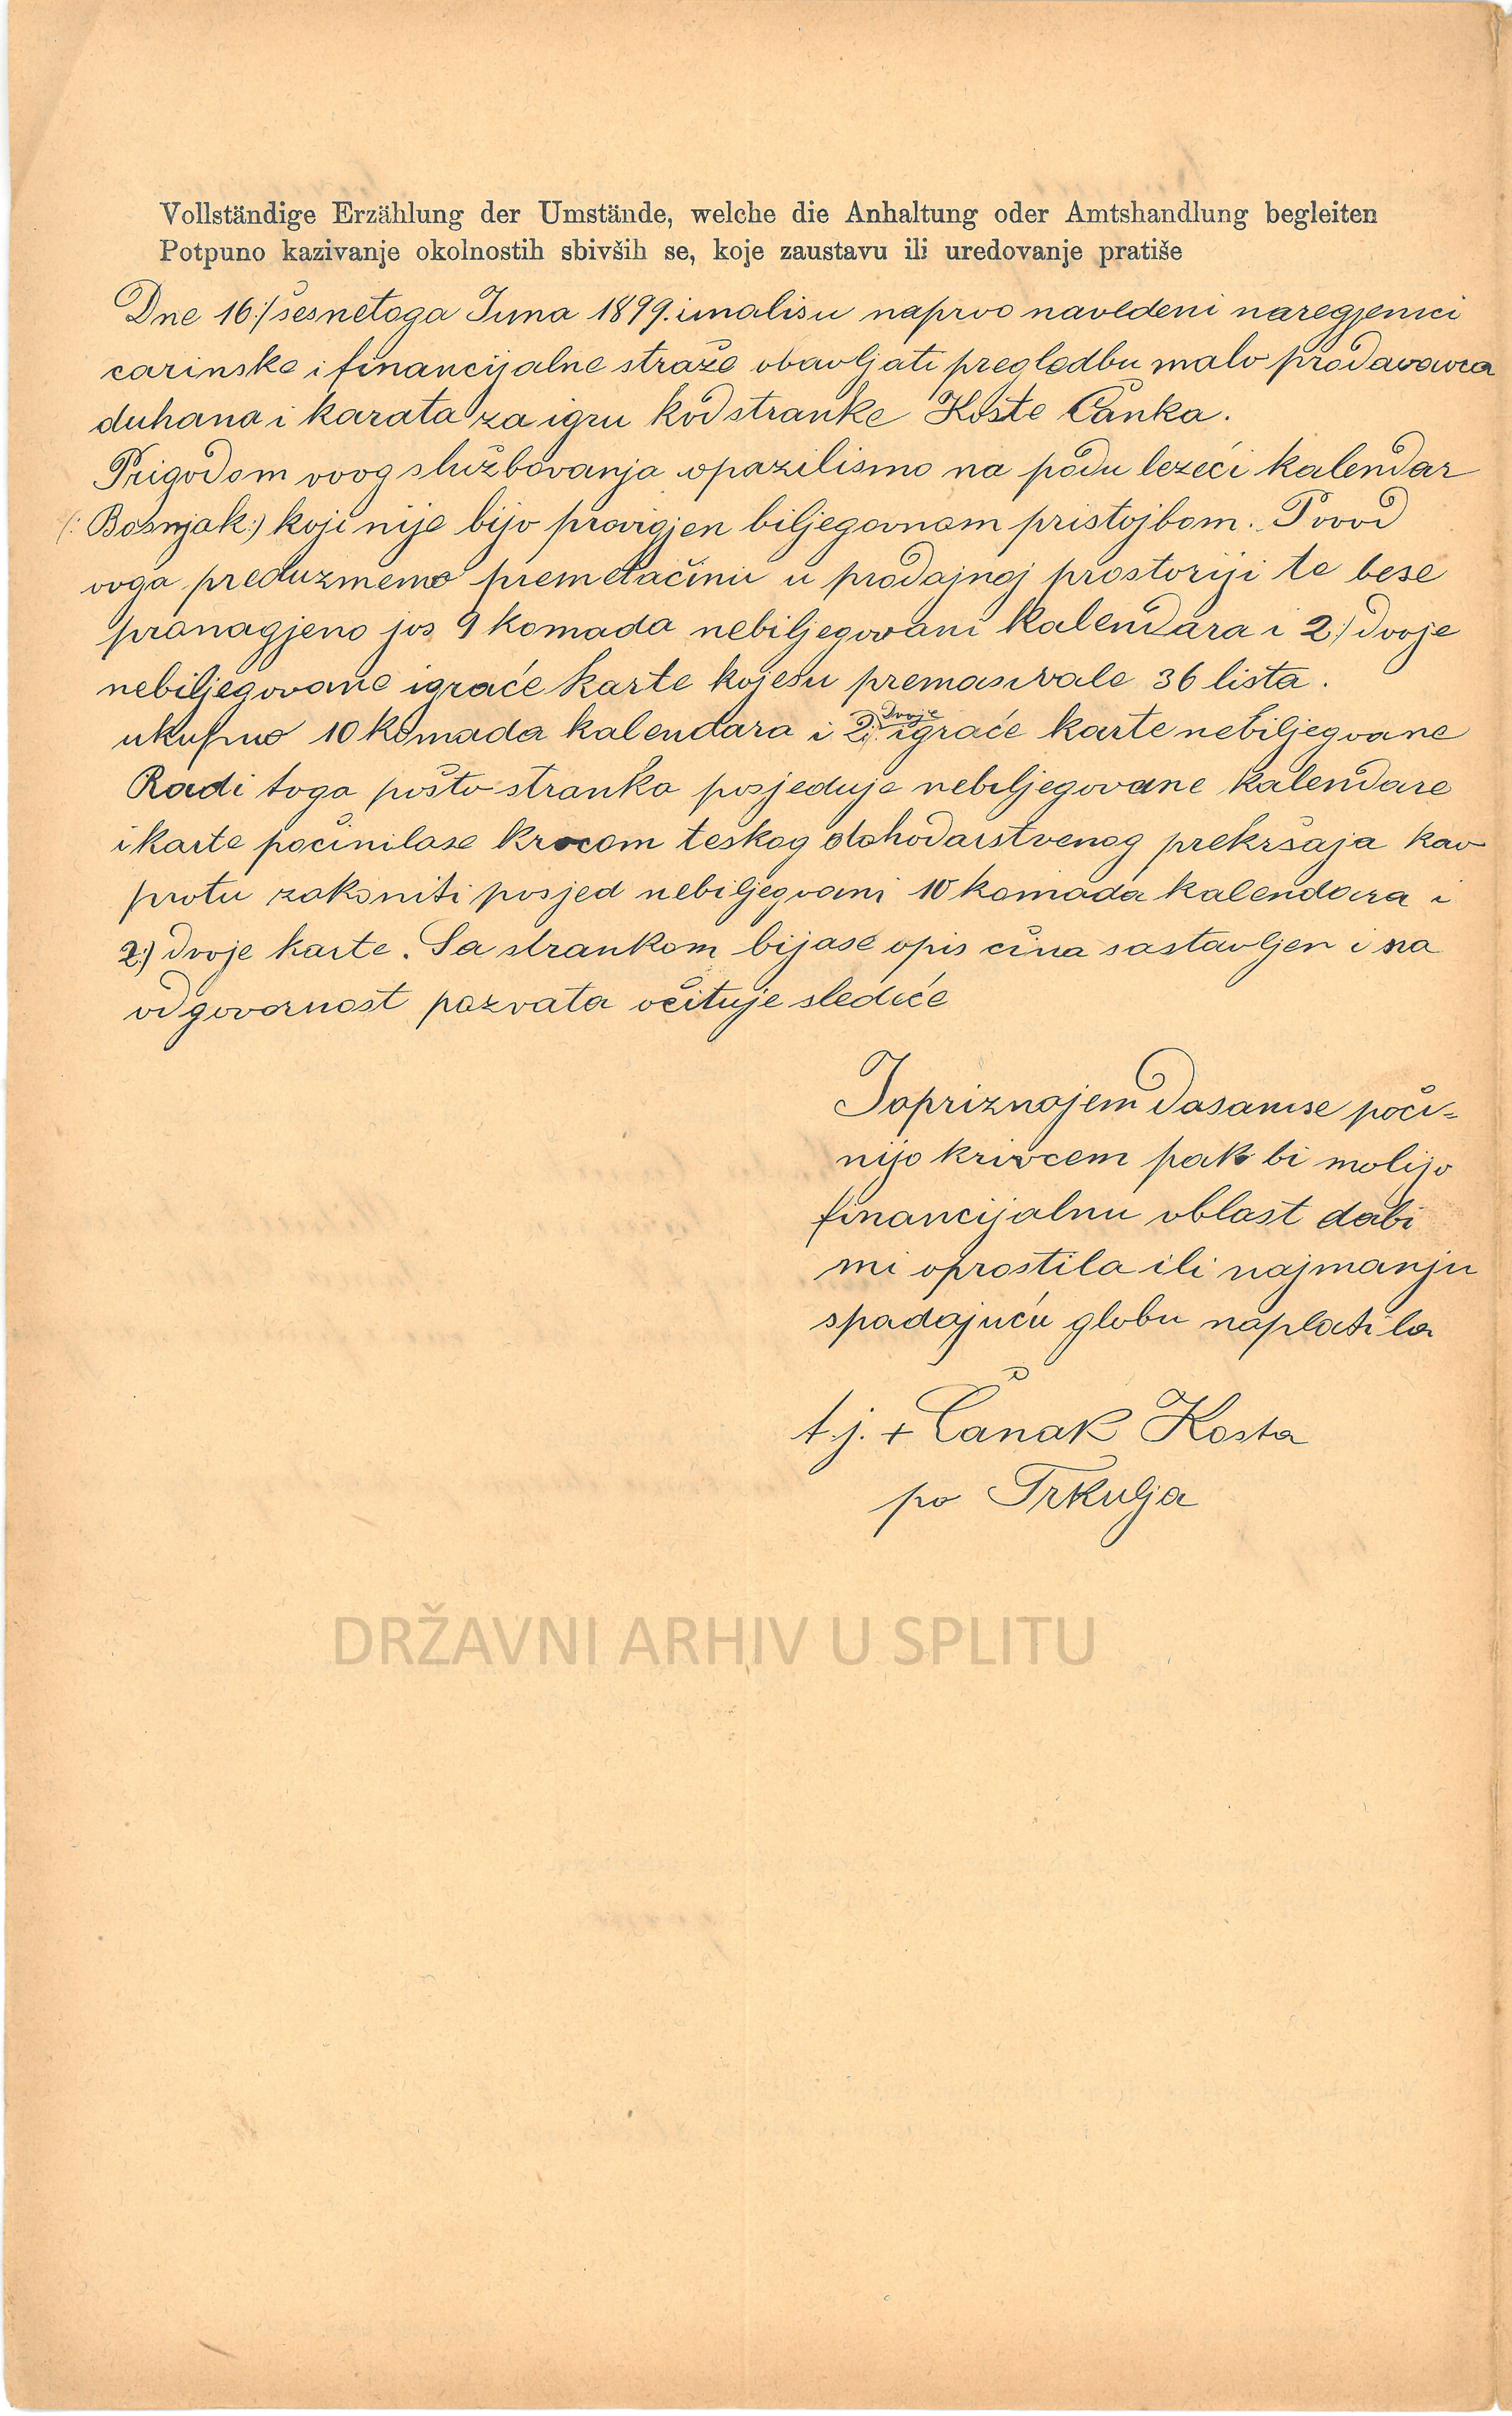 Vollständige Erzählung der Umstände, welche die Anhaltung oder Amtshandlung begleiten
Potpuno kazivanje okolnostih sbivših se, koje zaustavu ili uredovanje pratiše
Dne 16:/ šesnetoga Juna 1899. imalisu naprvo navedeni naregjenici
carinske i financijalne straže obavljati pregledbu malo prodavavca
duhana i karata za igru kod stranke Koste Čanka.
Prigodom ovog službovanja opazilismo na podu lezeći kalendar
(: Bosnjak:) koji nije bijo providjen biljegovnom pristojbom. Povod
ovga preduzmemo premetačinu u prodajnoj prostoriji te bese
pronagjeno jos 9 komada nebiljegovani kalendara i 2:/ dvoje
nebiljegovane igraće karte kojesu premasivale 36 lista.
ukupno 10 komada kalendara i 2:/ dvoje igraće karte nebiljegovane
Radi toga pošto stranka posjeduje nebiljegovane kalendare
i karte počinilase krivcom teskog dohodarstvenog prekršaja kao
protu zakoniti posjed nebiljegovani 10 komada kalendara i
2:) dvoje karte. Sa strankom bijase opis čina sastavljen i na
odgovornost pozvata očituje slediće
Japriznajem dasamse poči-
nijo krivcem pak bi molijo
financijalnu oblast dabi
mi oprostila ili najmanju
spadajuću globu naplatila
t.j. + Čanak Kosta
po Trkulja
DRŽAVNI ARHIV U SPLITU